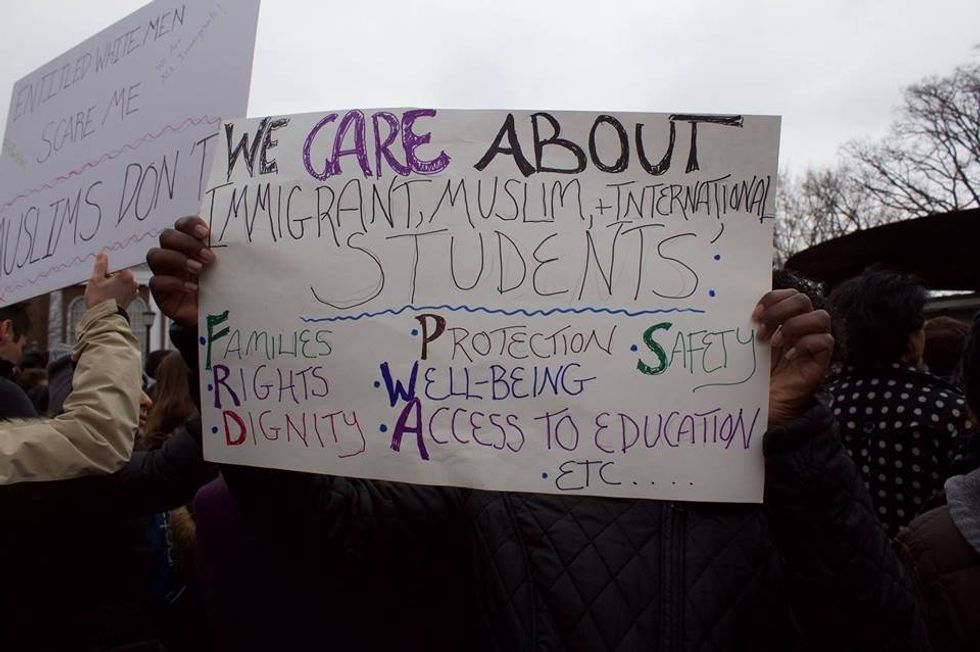 ENTITLED WHITE MEN
SCARE ME
MUSLIMS DON'T
WE CARE ABOUT
IMMIGRANT, MUSLIM, + INTERNATIONAL
STUDENTS':
• FAMILIES • PROTECTION • SAFETY
• RIGHTS • WELL-BEING
• DIGNITY • ACCESS TO EDUCATION
• ETC.....